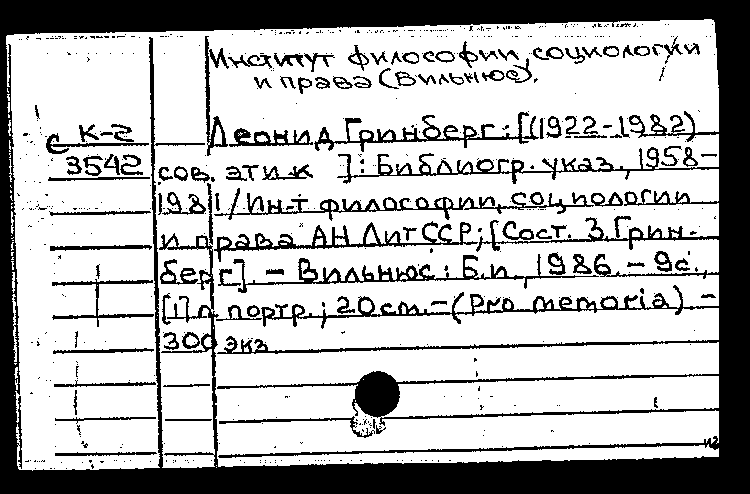 Институт философии, социологии
и права (Вильнюс).
с К-2 Леонид Гринберг: [(1922-1982)
3542 сов. этик ]: Библиогр. указ., 1958-
1981 / Ин-т философии, социологии
и права АН ЛитССР; [Сост. З. Грин-
берг]. - Вильнюс: Б.и., 1986. - 9с.,
[1] л. портр.; 20см. - (Pro memoria) -
300 экз